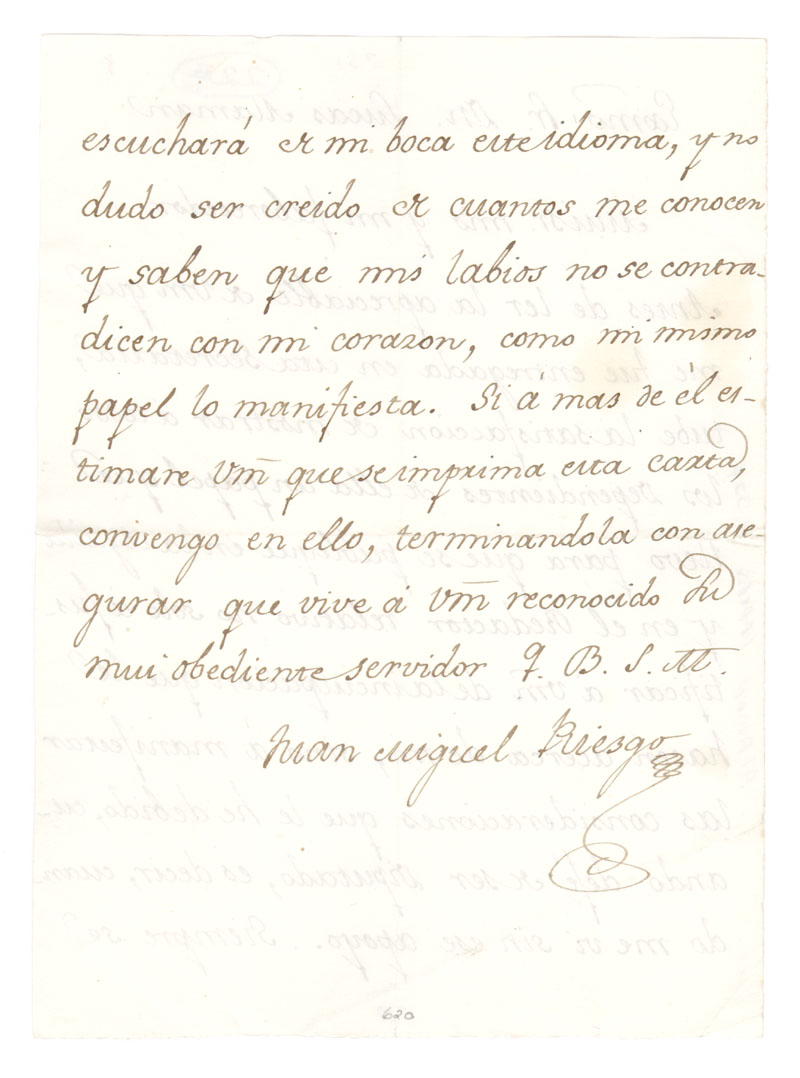 escuchará de mi boca este idioma, y no
dudo ser creido de cuantos me conocen
y saben que mis labios no se contra-
dicen con mi corazon, como mi mismo
papel lo manifiesta. Si á mas de él es-
timare Vm̃ que se imprima esta carta,
convengo en ello, terminandola con ase-
gurar que vive á Vm̃ reconocido Su
mui obediente servidor q. B. S. M.
Juan Miguel Riesgo
620